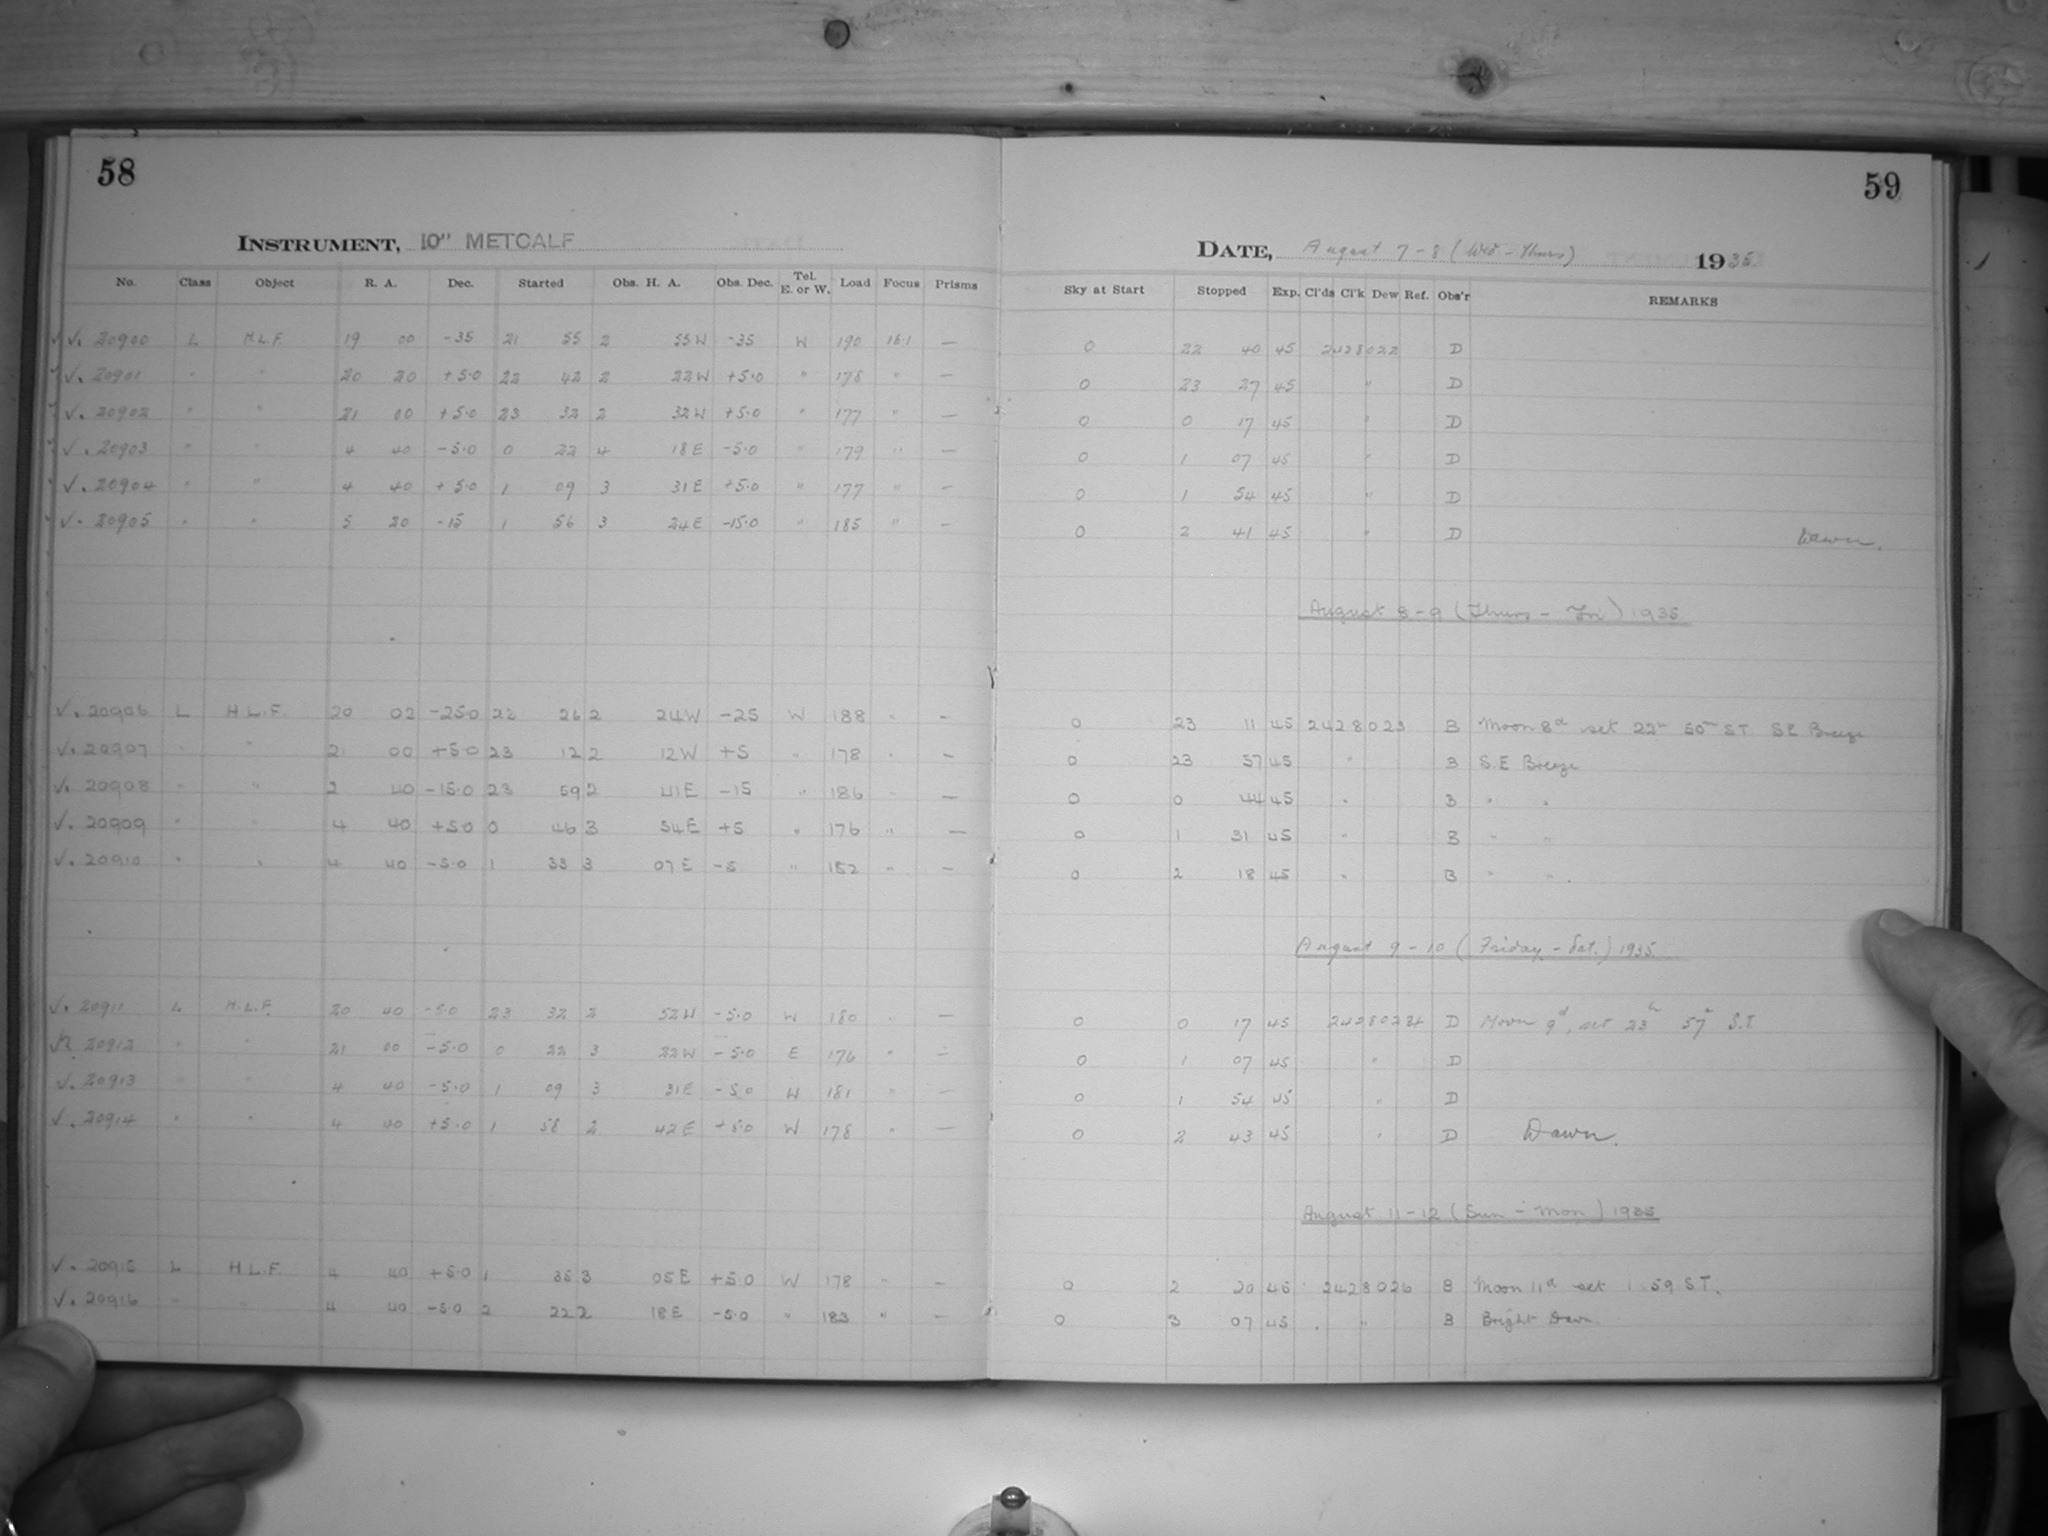 58
INSTRUMENT, 10" METCALF
No. Class Object R. A. Dec. Started Obs. H. A. Obs. Dec. Tel. E. or W. Load Focus Prisms
√. 20900 L H.L.F. 19 00 -35 21 55 2 55W -35 W 190 16.1 —
√. 20901 " " 20 20 +5.0 22 42 2 22W +5.0 " 178 " —
√. 20902 " " 21 00 +5.0 23 32 2 32W +5.0 " 177 " —
√. 20903 " " 4 40 -5.0 0 22 4 18E -5.0 " 179 " —
√. 20904 " " 4 40 +5.0 1 09 3 31E +5.0 " 177 " —
√. 20905 " " 5 20 -15 1 56 3 24E -15.0 " 185 " —
√. 20906 L H.L.F. 20 02 -25.0 22 26 2 24W -25 W 188 " —
√. 20907 " " 21 00 +5.0 23 12 2 12W +5 " 178 " —
√. 20908 " " 2 40 -15.0 23 59 2 41E -15 " 186 —
√. 20909 " " 4 40 +5.0 0 46 3 54E +5 " 176 " —
√. 20910 " " 4 40 -5.0 1 33 3 07E -5 " 182 " —
√. 20911 L H.L.F. 20 40 -5.0 23 32 2 52W -5.0 W 180 " —
20912 " " 21 00 -5.0 0 22 3 22W -5.0 E 176 " —
√. 20913 " " 4 40 -5.0 1 09 3 31E -5.0 W 181 " —
√. 20914 " " 4 40 +5.0 1 58 2 42E +5.0 W 178 " —
√. 20915 L H.L.F. 4 40 +5.0 1 35 3 05E +5.0 W 178 " —
√. 20916 " " 4 40 -5.0 2 22 2 18E -5.0 " 183 " —
59
DATE, August 7-8 (Wed - Thurs) 1935
Sky at Start Stopped Exp. Cl'ds Cl'k Dew Ref. Obs'r REMARKS
0 22 40 45 2428022 D
0 23 27 45 " D
0 0 17 45 " D
0 1 07 45 " D
0 1 54 45 " D
0 2 41 45 " D Dawn.
August 8-9 (Thurs - Fri) 1935
0 23 11 45 2428023 B Moon 8d set 22h 50m ST SE Breeze
0 23 57 45 " B S.E Breeze
0 0 44 45 " B " "
0 1 31 45 " B " "
0 2 18 45 " B " "
August 9-10 (Friday - Sat.) 1935
0 0 17 45 2428024 D Moon 9d, set 23h 57m S.T
0 1 07 45 " D
0 1 54 45 " D
0 2 43 45 " D Dawn.
August 11-12 (Sun - Mon) 1935
0 2 20 45 2428026 B Moon 11d set 1 59 ST.
0 3 07 45 " B Bright Dawn